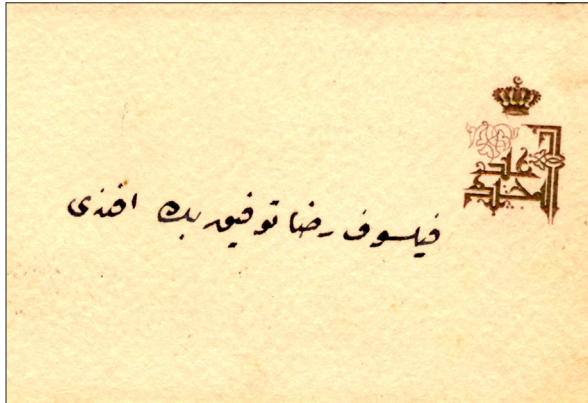 عبد المجيد
فیلسوف رضا توفیق بك افندی